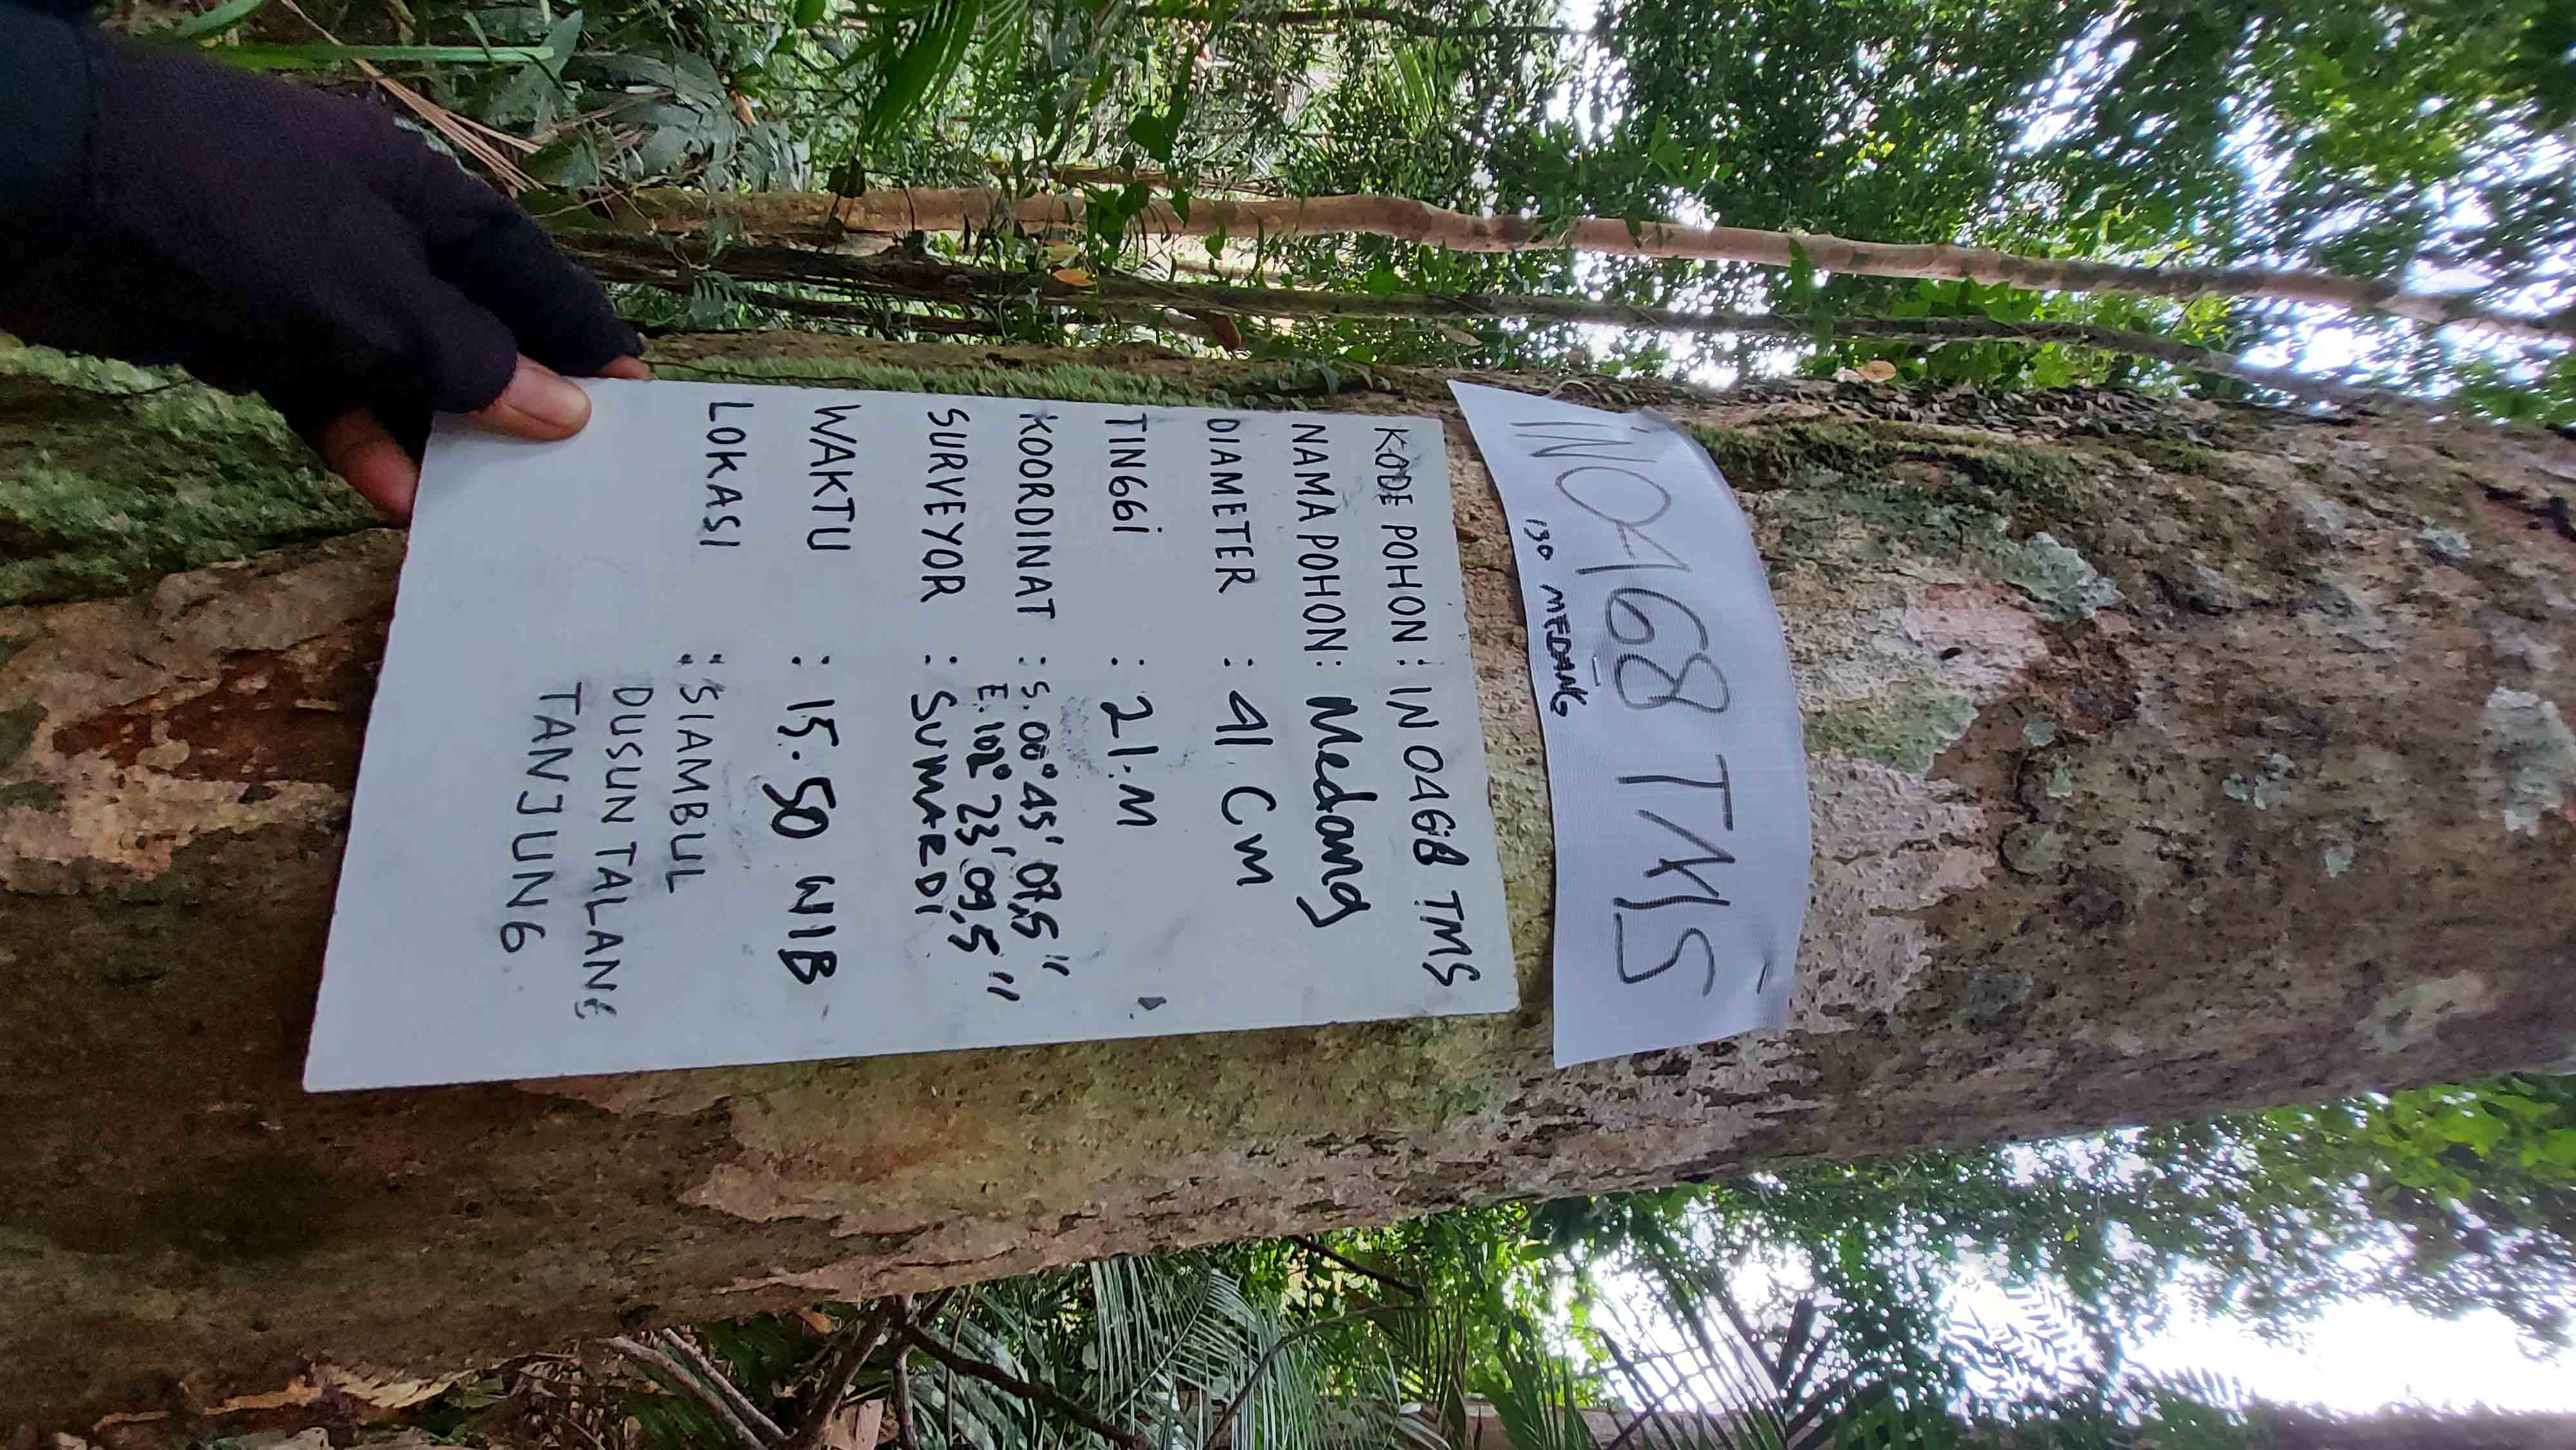 INO468 TMS
130 MEDANG
KODE POHON : IN 0468 TMS
NAMA POHON : Medang
DIAMETER : 41 Cm
TINGGi : 21.M
KOORDINAT : S. 00° 45' 07,5"
E. 102° 23' 09,5"
SURVEYOR : SUMARDI
WAKTU : 15.50 WIB
LOKASI : SIAMBUL
DUSUN TALANG
TANJUNG